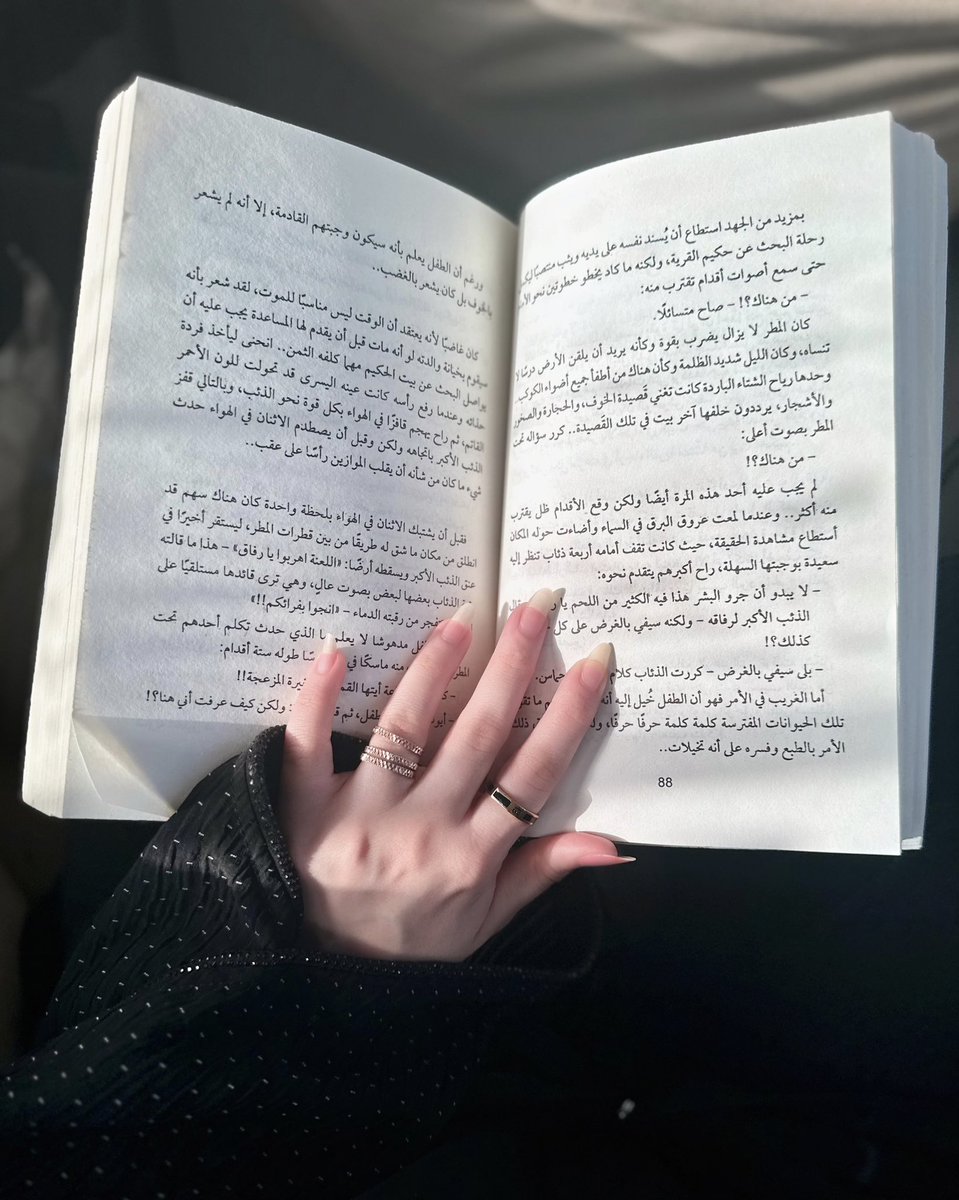 بمزيد من الجهد استطاع أن يُسند نفسه على يديه ويثب منتصبًا
رحلة البحث عن حكيم القرية، ولكنه ما كاد يخطو خطوتين نحو
حتى سمع أصوات أقدام تقترب منه:
– من هناك؟! – صاح متسائلًا.
كان المطر لا يزال يضرب بقوة وكأنه يريد أن يلقن الأرض درسًا لا
تنساه، وكان الليل شديد الظلمة وكأن هناك من أطفأ جميع أضواء الكوكب
وحدها رياح الشتاء الباردة كانت تغني قَصيدة الخوف، والحجارة والصخور
والأشجار، يرددون خلفها آخر بيت في تلك القَصيدة.. كرر سؤاله تحت
المطر بصوت أعلى:
– من هناك؟!
لم يجب عليه أحد هذه المرة أيضًا ولكن وقع الأقدام ظل يقترب
منه أكثر.. وعندما لمعت عروق البرق في السماء وأضاءت حوله المكان
أستطاع مشاهدة الحقيقة، حيث كانت تقف أمامه أربعة ذئاب تنظر إليه
سعيدة بوجبتها السهلة، راح أكبرهم يتقدم نحوه:
– لا يبدو أن جرو البشر هذا فيه الكثير من اللحم يا
الذئب الأكبر لرفاقه – ولكنه سيفي بالغرض على كل
كذلك؟!
– بلى سيفي بالغرض – كررت الذئاب كلام حماس.
أما الغريب في الأمر فهو أن الطفل خُيل إليه أنه ما
تلك الحيوانات المفترسة كلمة كلمة حرفًا حرفًا، ذلك
الأمر بالطبع وفسره على أنه تخيلات..
88
ورغم أن الطفل يعلم بأنه سيكون وجبتهم القادمة، إلا أنه لم يشعر
بالخوف بل كان يشعر بالغضب..
كان غاضبًا لأنه يعتقد أن الوقت ليس مناسبًا للموت، لقد شعر بأنه
سيقوم بخيانة والدته لو أنه مات قبل أن يقدم لها المساعدة يجب عليه أن
يواصل البحث عن بيت الحكيم مهما كلفه الثمن.. انحنى ليأخذ فردة
حذائه وعندما رفع رأسه كانت عينه اليسرى قد تحولت للون الأحمر
القاتم، ثم راح يهجم قافزًا في الهواء بكل قوة نحو الذئب، وبالتالي قفز
الذئب الأكبر باتجاهه ولكن وقبل أن يصطدم الاثنان في الهواء حدث
شيء ما كان من شأنه أن يقلب الموازين رأسًا على عقب..
فقبل أن يشتبك الاثنان في الهواء بلحظة واحدة كان هناك سهم قد
انطلق من مكان ما شق له طريقًا من بين قطرات المطر، ليستقر أخيرًا في
عنق الذئب الأكبر ويسقطه أرضًا: «اللعنة اهربوا يا رفاق» – هذا ما قالته
الذئاب بعضها لبعض بصوت عالٍ، وهي ترى قائدها مستلقيًا على
من رقبته الدماء – «انجوا بفرائكم!!»
مدهوشا لا يعلم ما الذي حدث تكلم أحدهم تحت
المطر منه ماسكًا في طوله ستة أقدام:
– أيتها المزعجة!!
– الطفل، ثم ولكن كيف عرفت أني هنا؟!